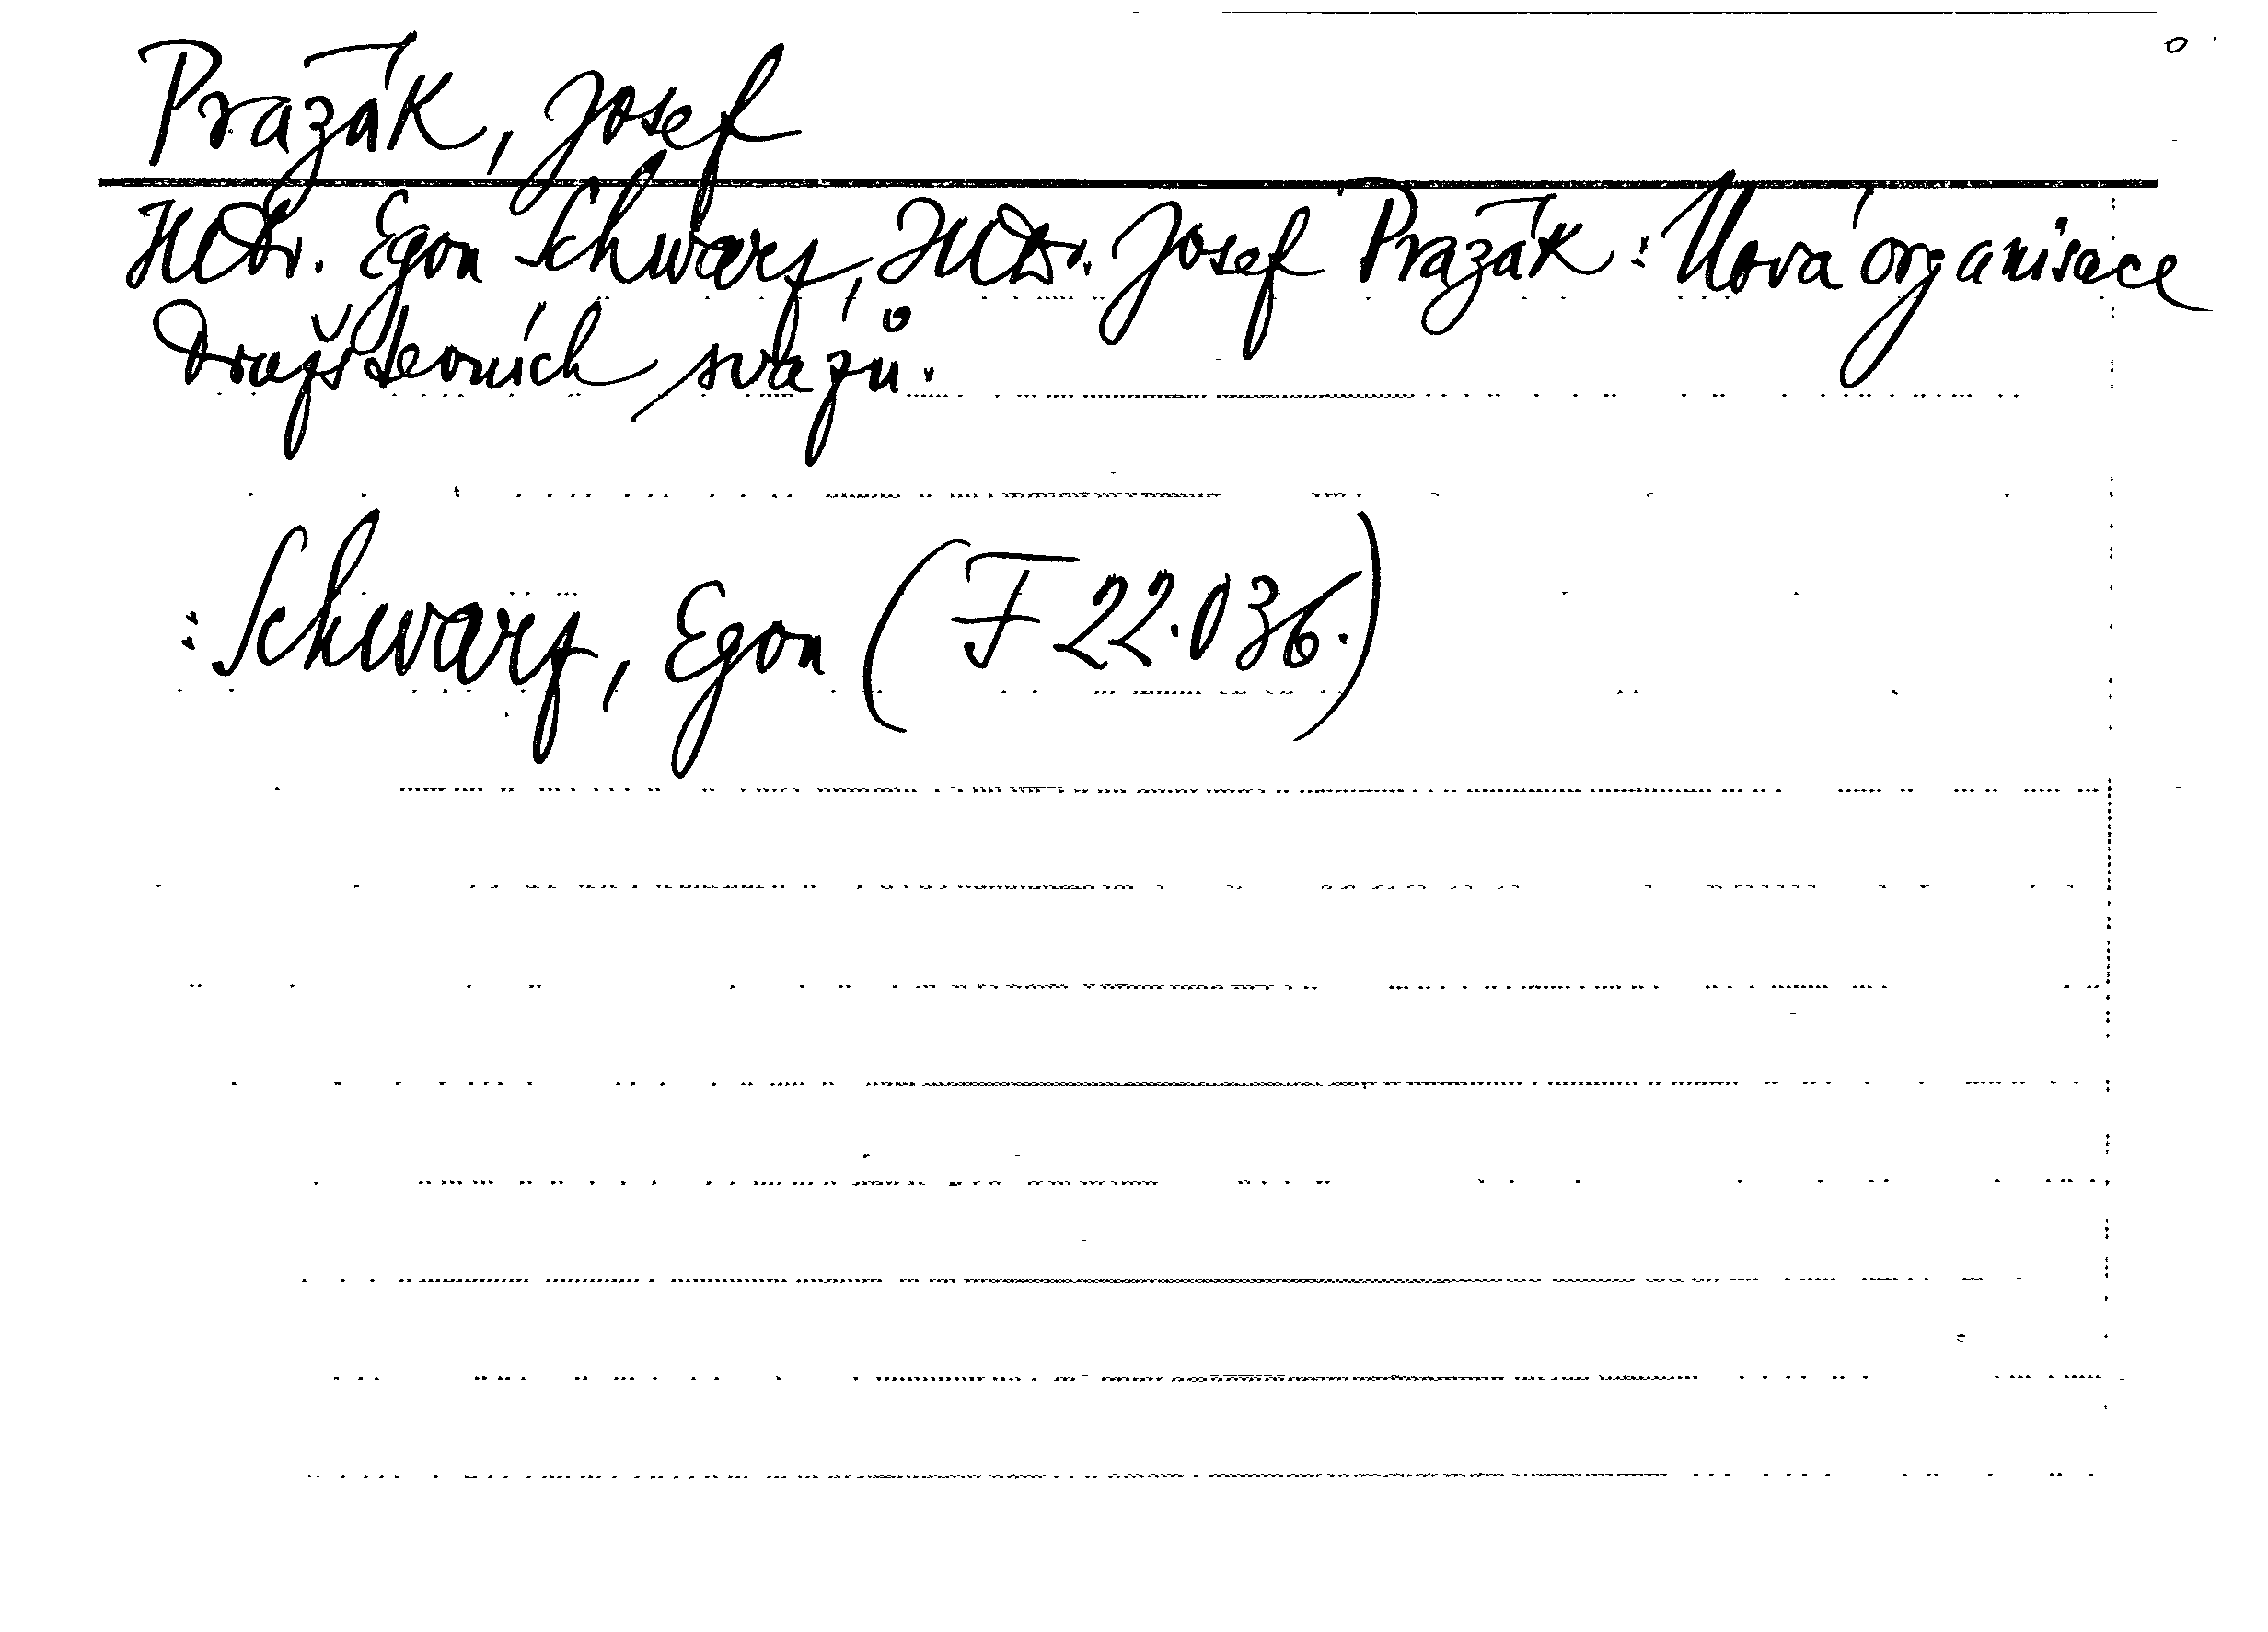 Pražák, Josef
JUDr. Egon Schwarz, JUDr. Josef Pražák: Nová organisace
družstevních svazů.
: Schwarz, Egon (F 22.036.)